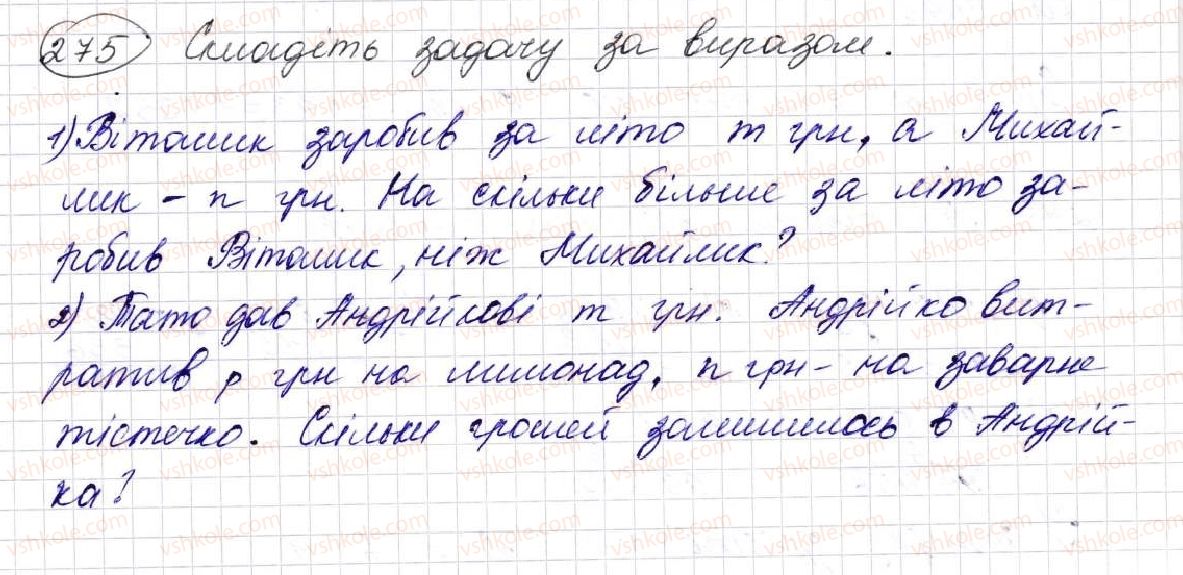 275 Складіть задачу за виразом.
1) Віталик заробив за літо m грн, а Михай-
лик - n грн. На скільки більше за літо за-
робив Віталик, ніж Михайлик?
2) Тато дав Андрійкові m грн. Андрійко вит-
ратив p грн на лимонад, n грн - на заварне
тістечко. Скільки грошей залишилось в Андрій-
ка?